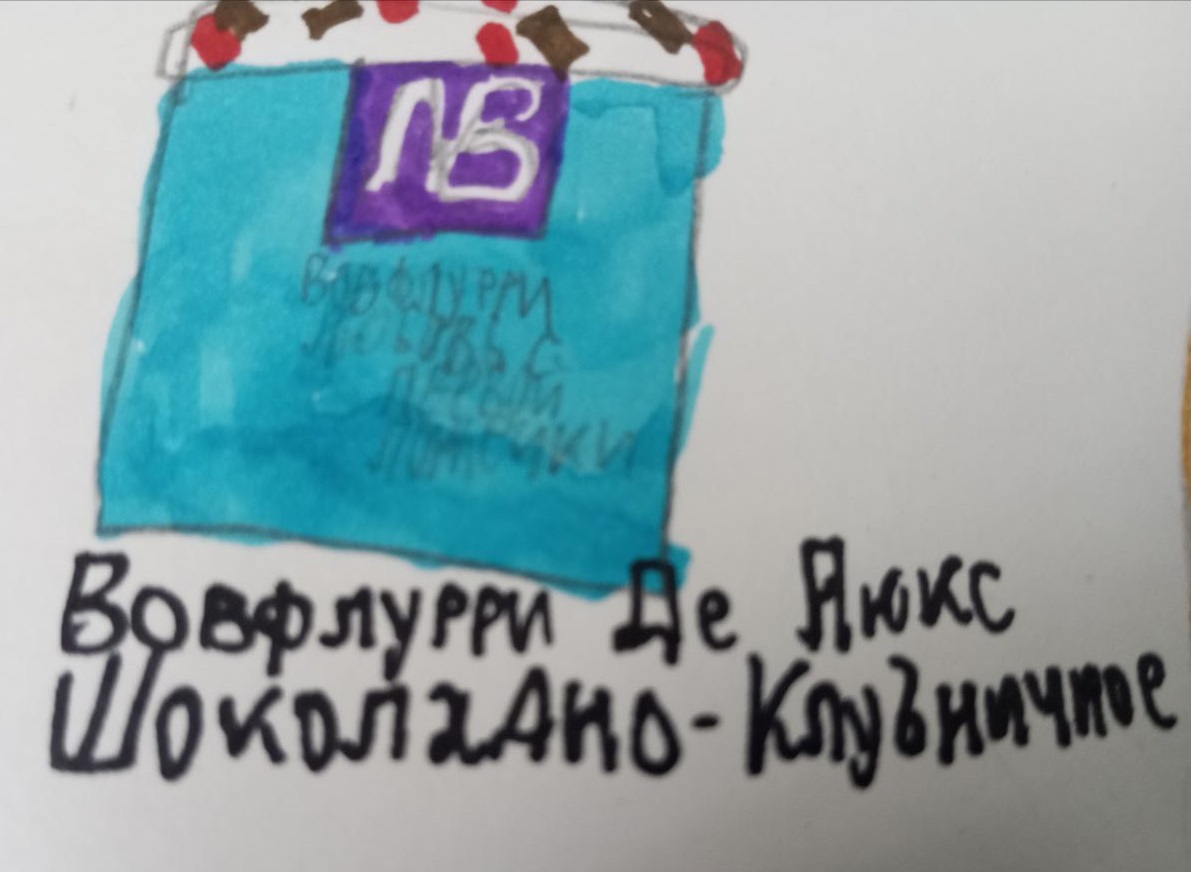 ЛВ
Вовфлурри
любовь с
ложечки
Вовфлурри Де Люкс
ШоколаДно-Клубничное